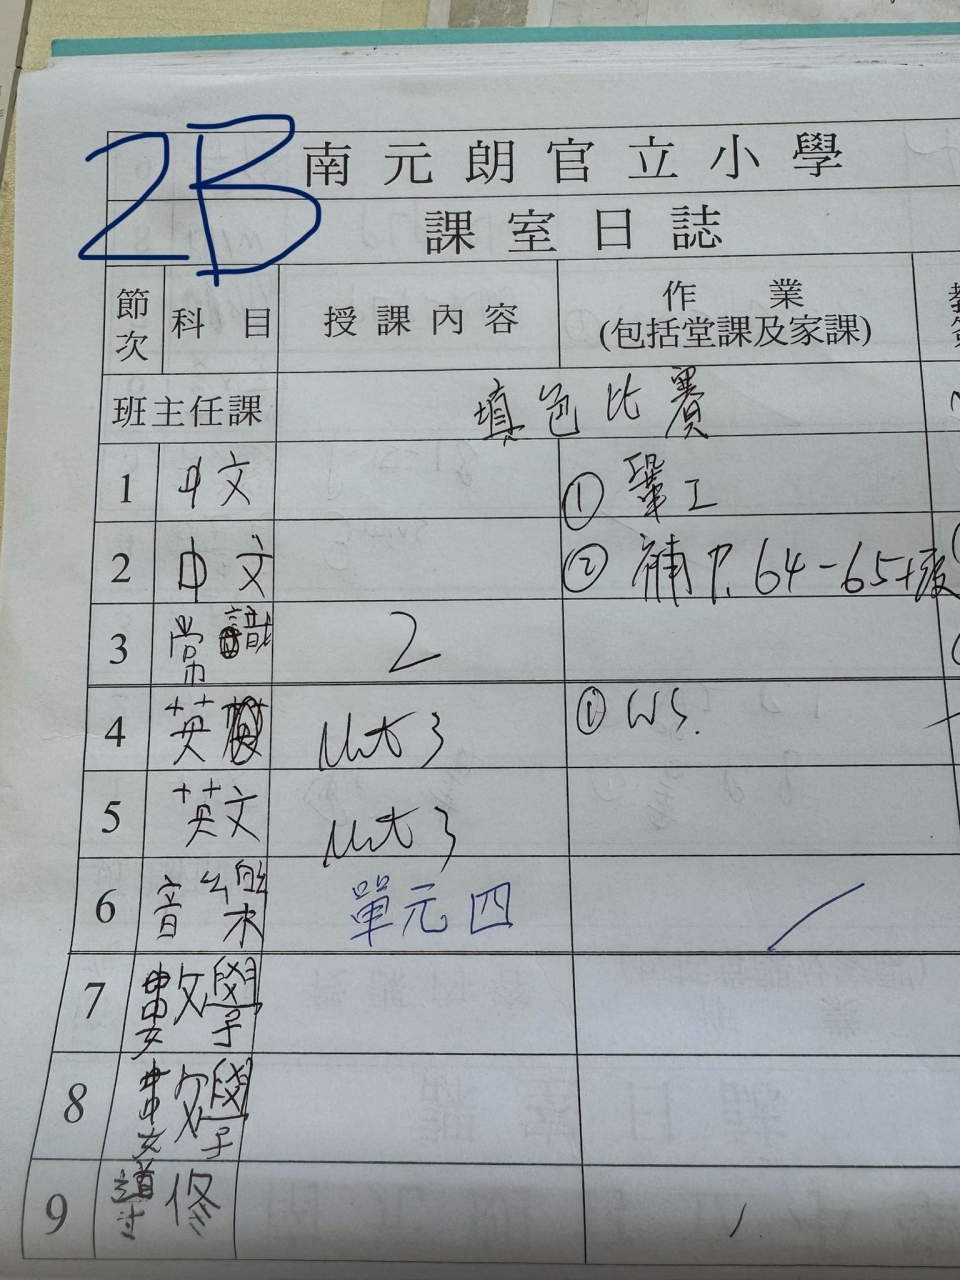 2B 南元朗官立小學
課室日誌
節次 科目 授課內容 作業 (包括堂課及家課)
班主任課 填色比賽
1 中文 ① 鞏工
2 中文 ② 補 P. 64-65+
3 常識 2
4 英文 Unit 3 ① WS.
5 英文 Unit 3
6 音樂 單元四
7 數學
8 數學
9 導修